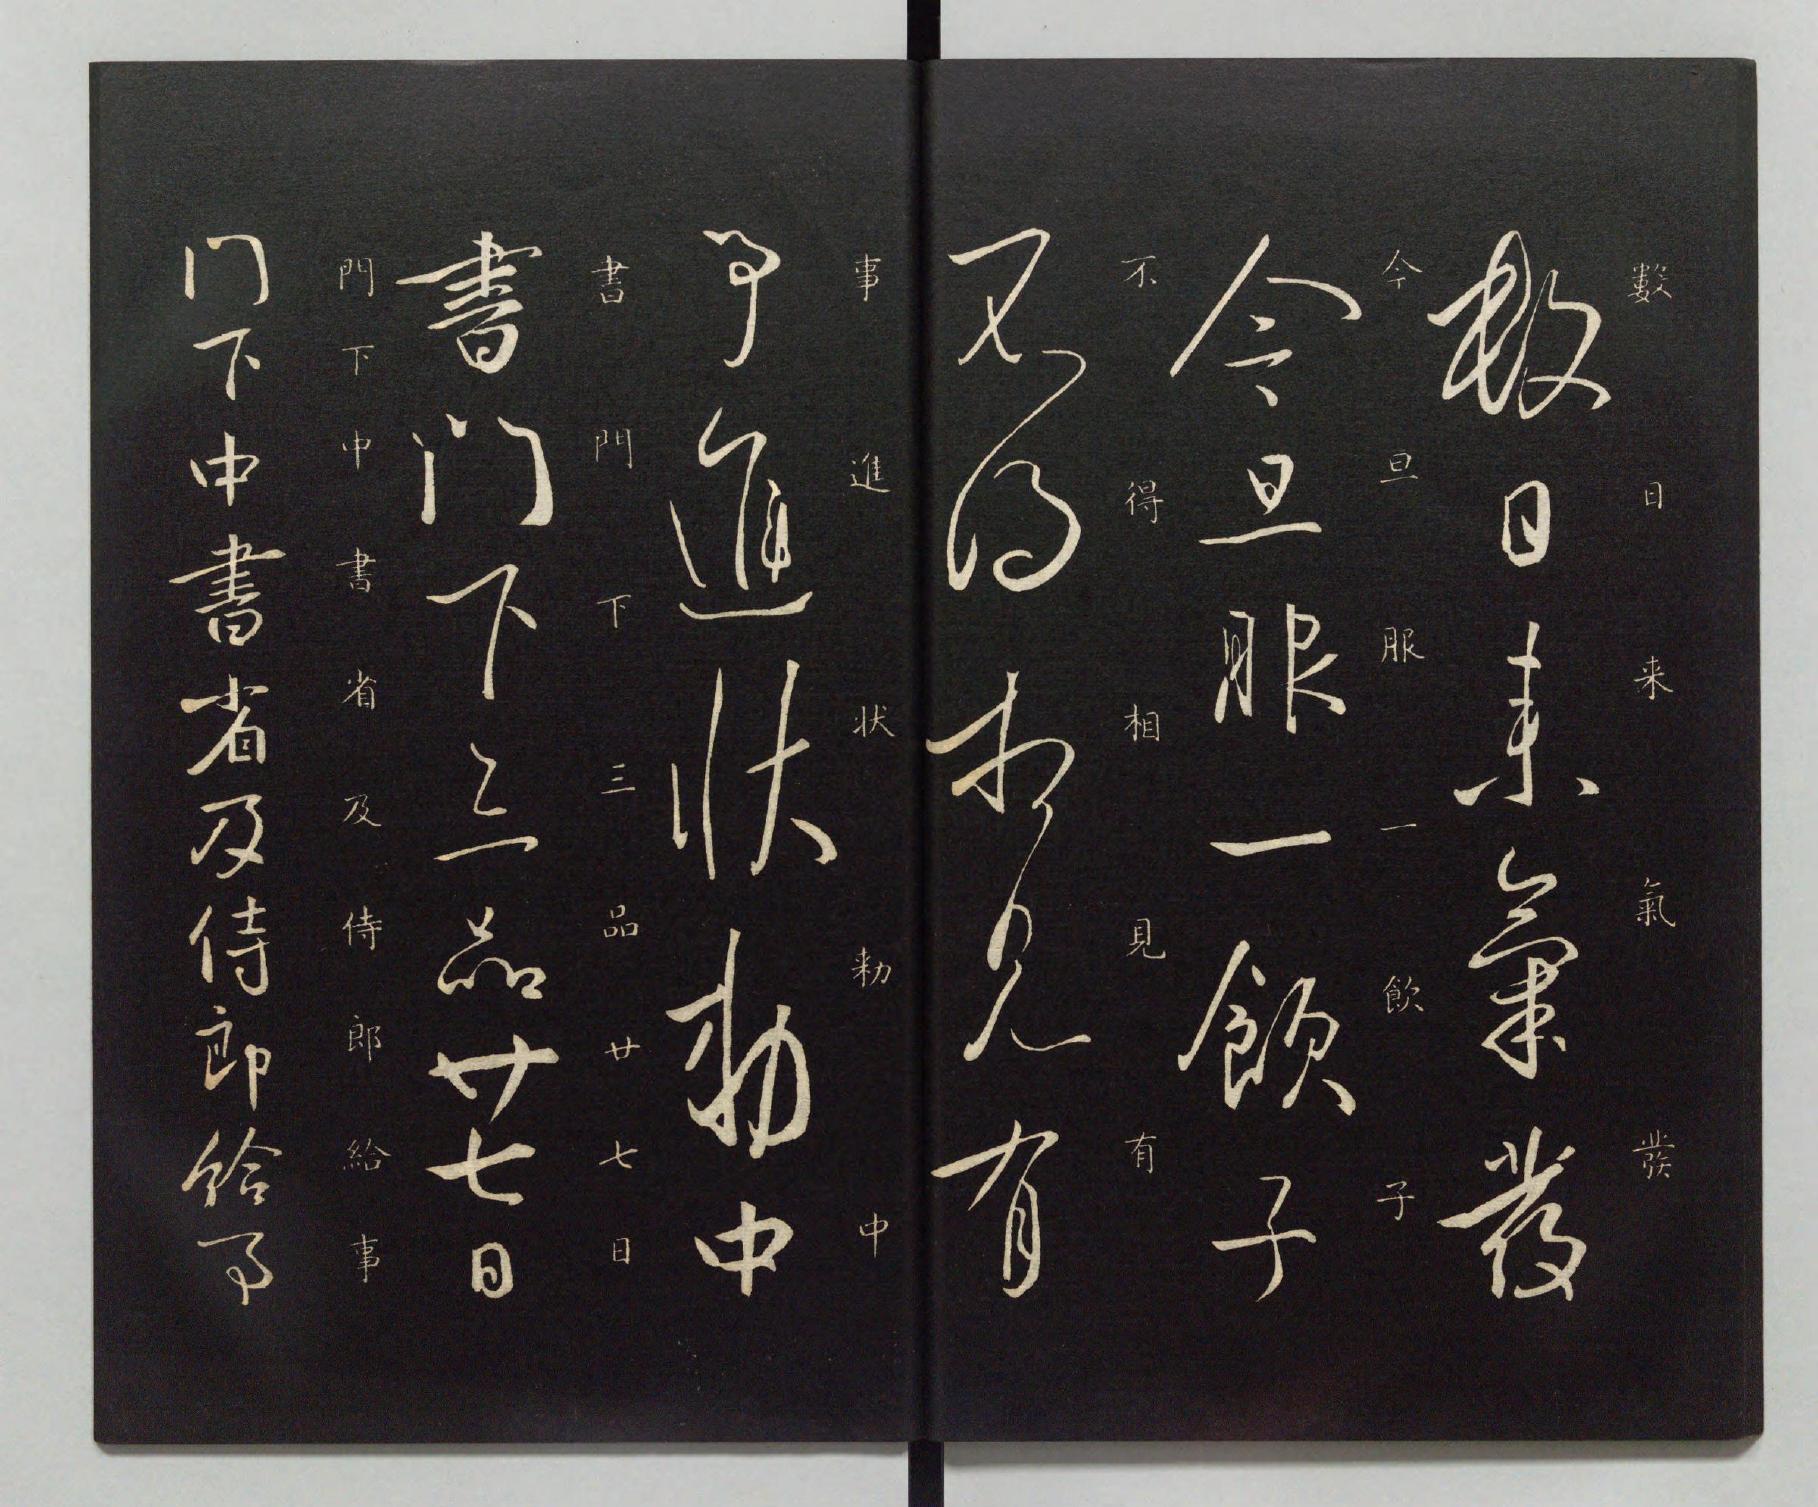 數日来氣發
數日来氣發
今旦服一飲子
今旦服一飲子
不得相見有
不得相見有
事進状勑中
事進状勑中
書門下三品廿七日
書門下三品廿七日
門下中書省及侍郎給事
門下中書省及侍郎給事